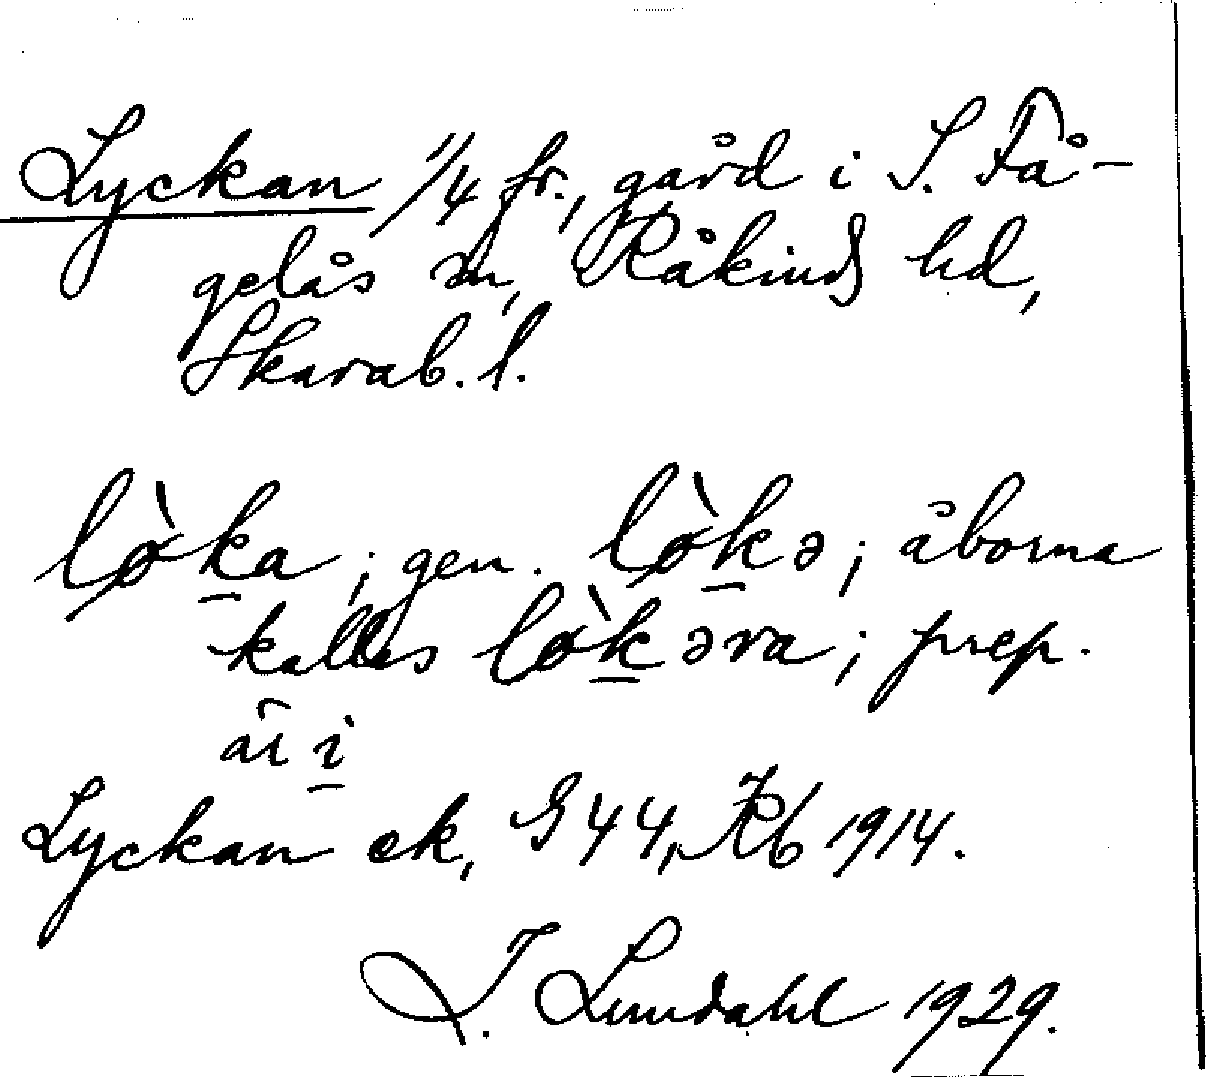 Lyckan 1/4 fr., gård i S. Få-
gelås sn, Kåkinds hd,
Skarab. l.
lø̀ka; gen. lø̀kə; åborna
kallas lø̀kəra; prep.
är i
Lyckan ek, G 44, Kb 1914.
I. Lundahl 1929.